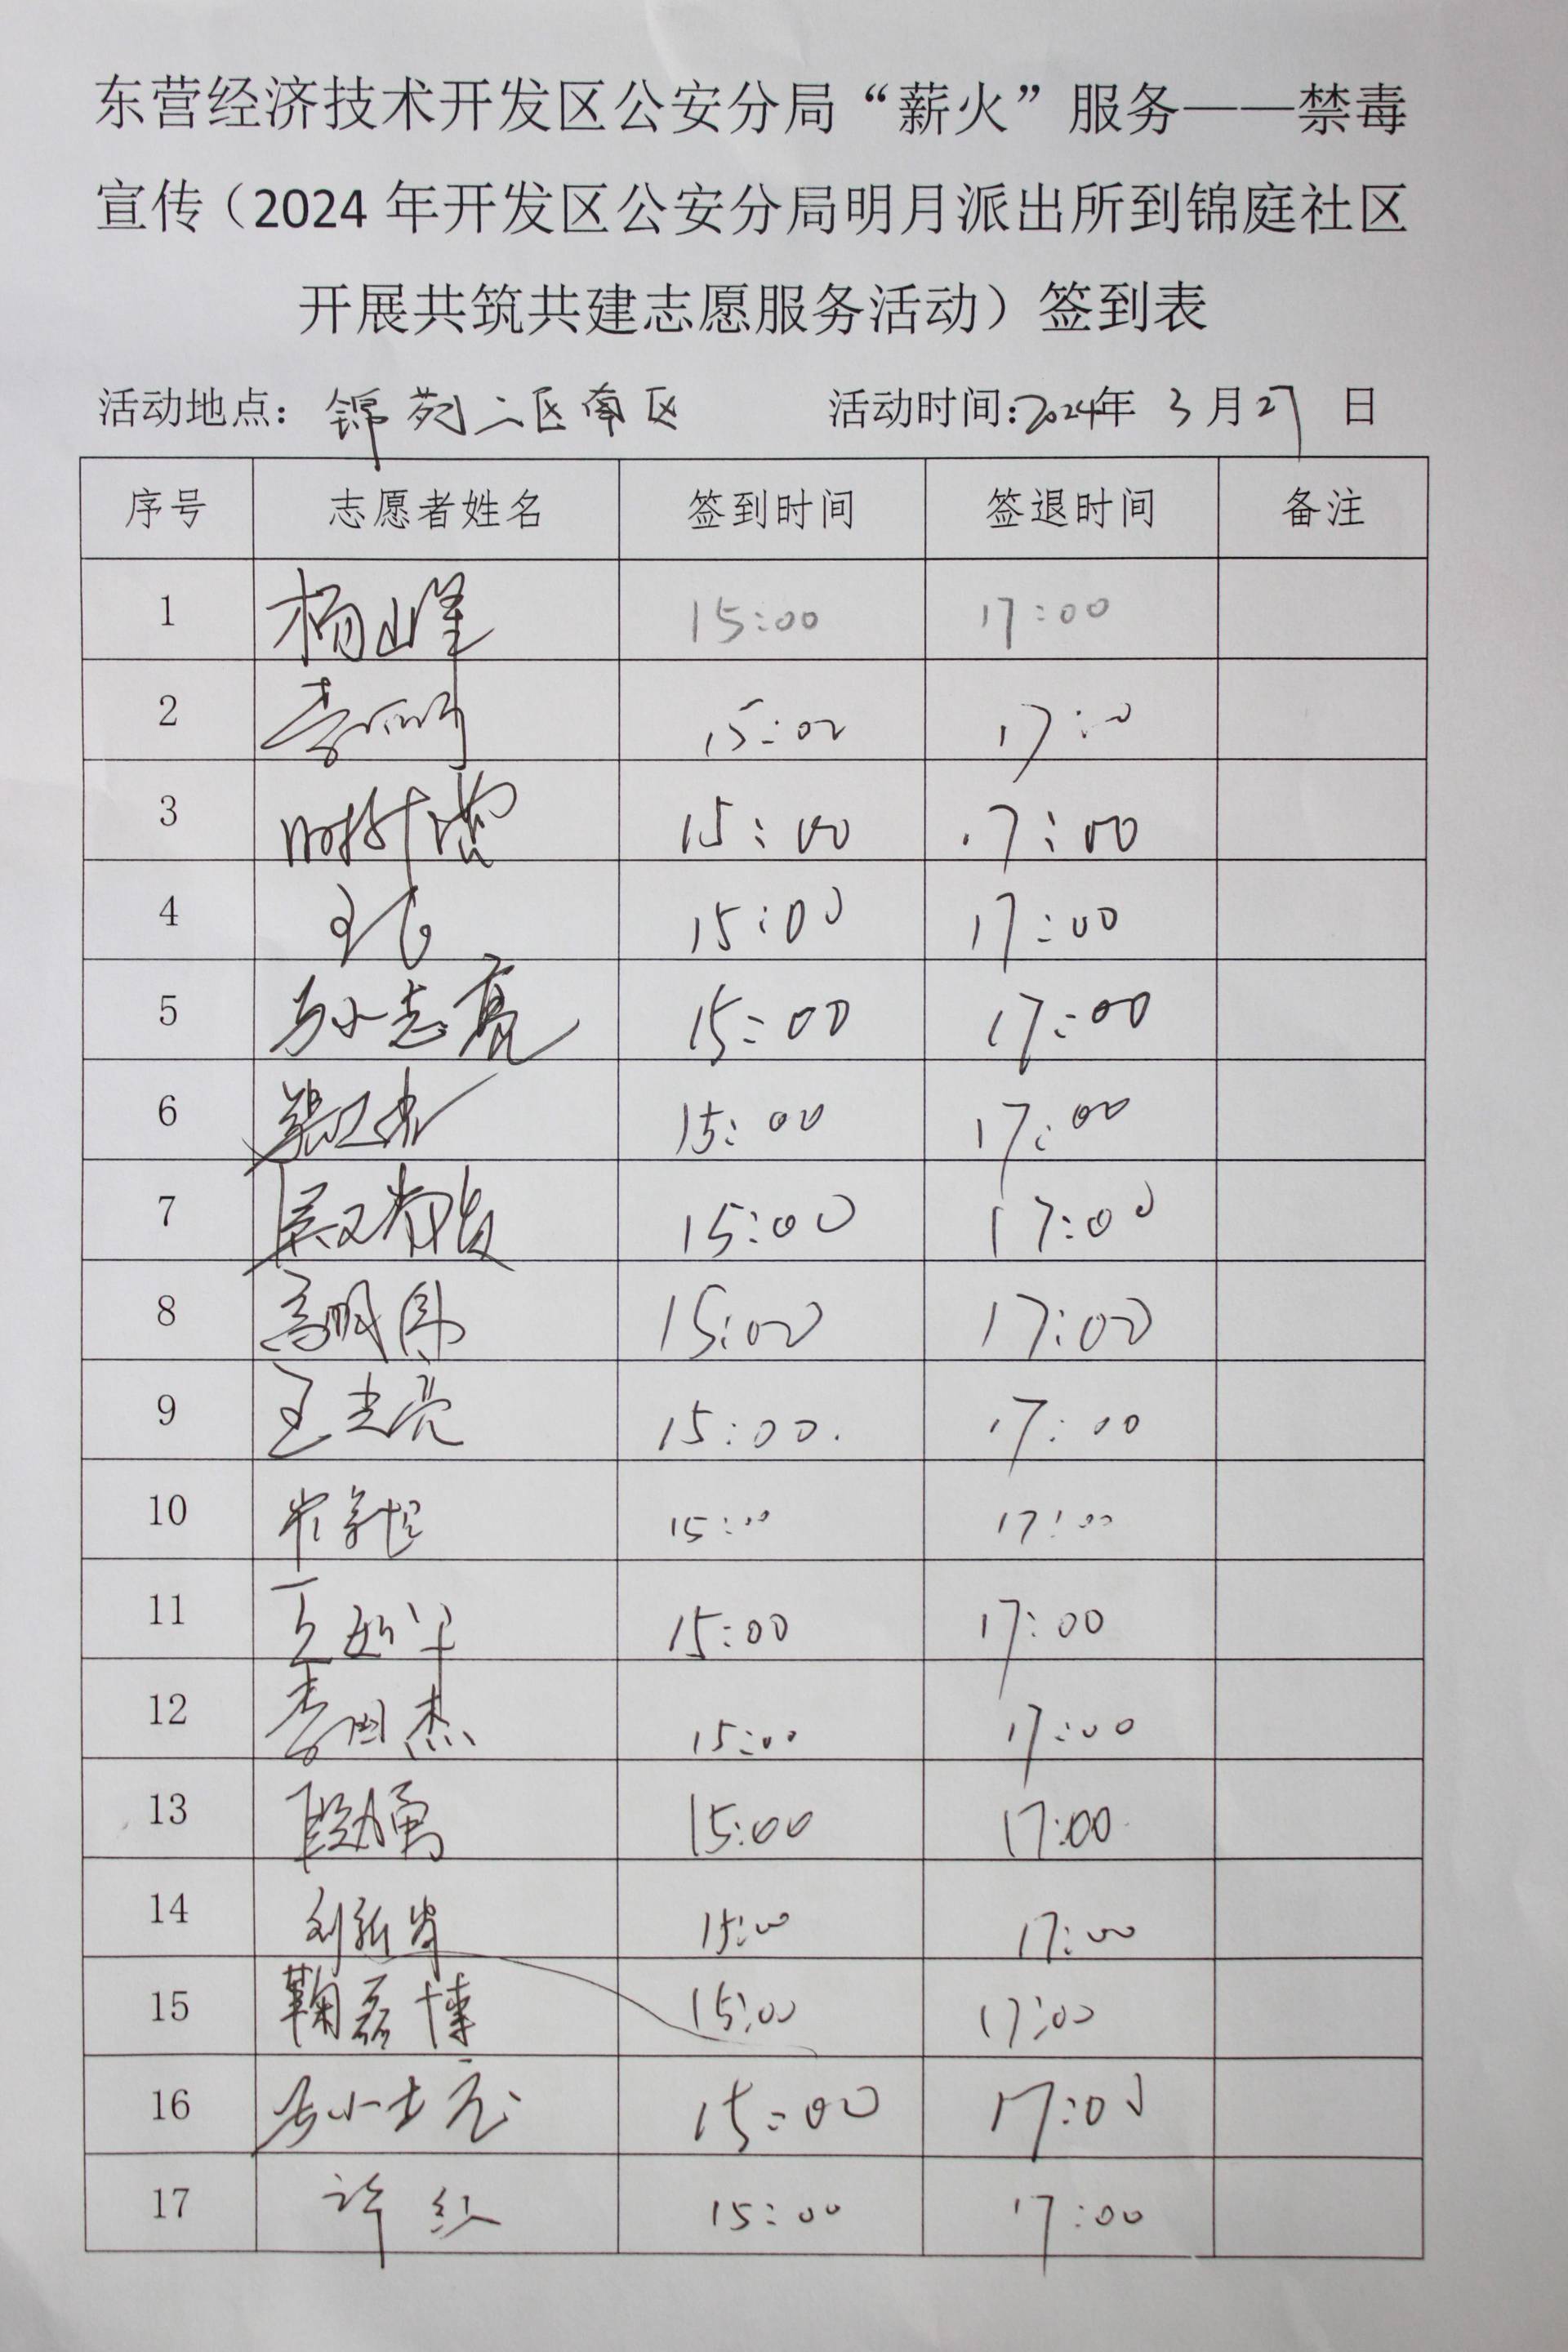 东营经济技术开发区公安分局“薪火”服务——禁毒
宣传（2024 年开发区公安分局明月派出所到锦庭社区
开展共筑共建志愿服务活动）签到表
活动地点：锦苑二区南区 活动时间：2024年 3月27日
序号 志愿者姓名 签到时间 签退时间 备注
1 杨山峰 15:00 17:00
2 李 15:00 17:00
3 15:00 17:00
4 王 15:00 17:00
5 孙志亮 15:00 17:00
6 15:00 17:00
7 15:00 17:00
8 高明伟 15:00 17:00
9 王志亮 15:00. 17:00
10 15:00 17:00
11 15:00 17:00
12 李国杰 15:00 17:00
13 段勇 15:00 17:00
14 刘新 15:00 17:00
15 鞠磊博 15:00 17:00
16 孙士 15:00 17:00
17 许红 15:00 17:00